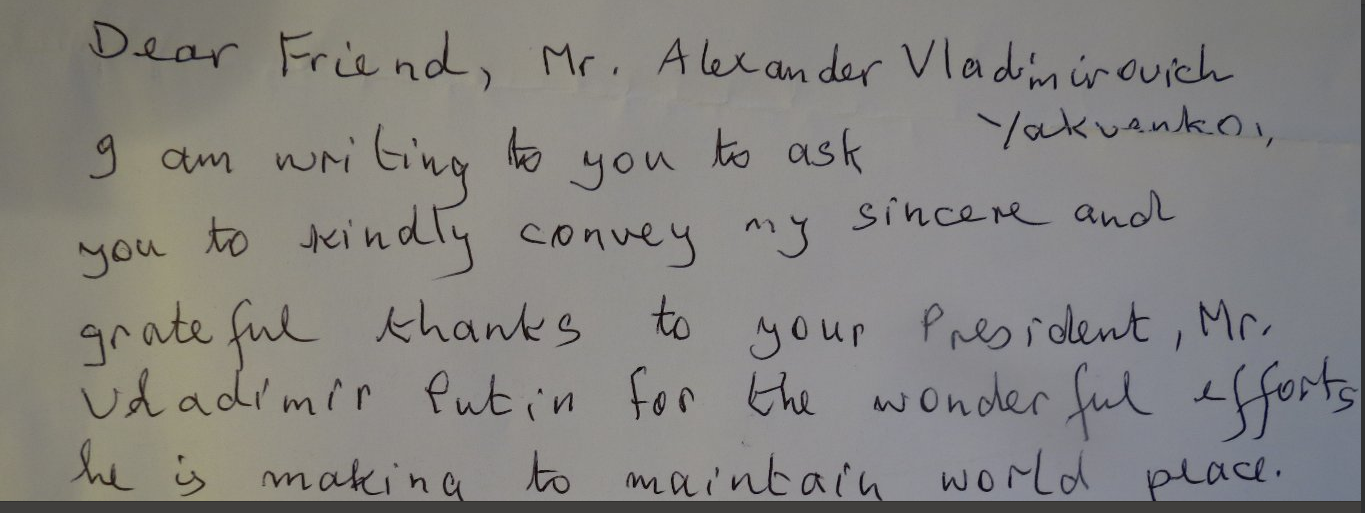 Dear Friend, Mr. Alexander Vladimirovich
Yakvenko,
I am writing to you to ask
you to kindly convey my sincere and
grateful thanks to your President, Mr.
Vladimir Putin for the wonderful efforts
he is making to maintain world peace.